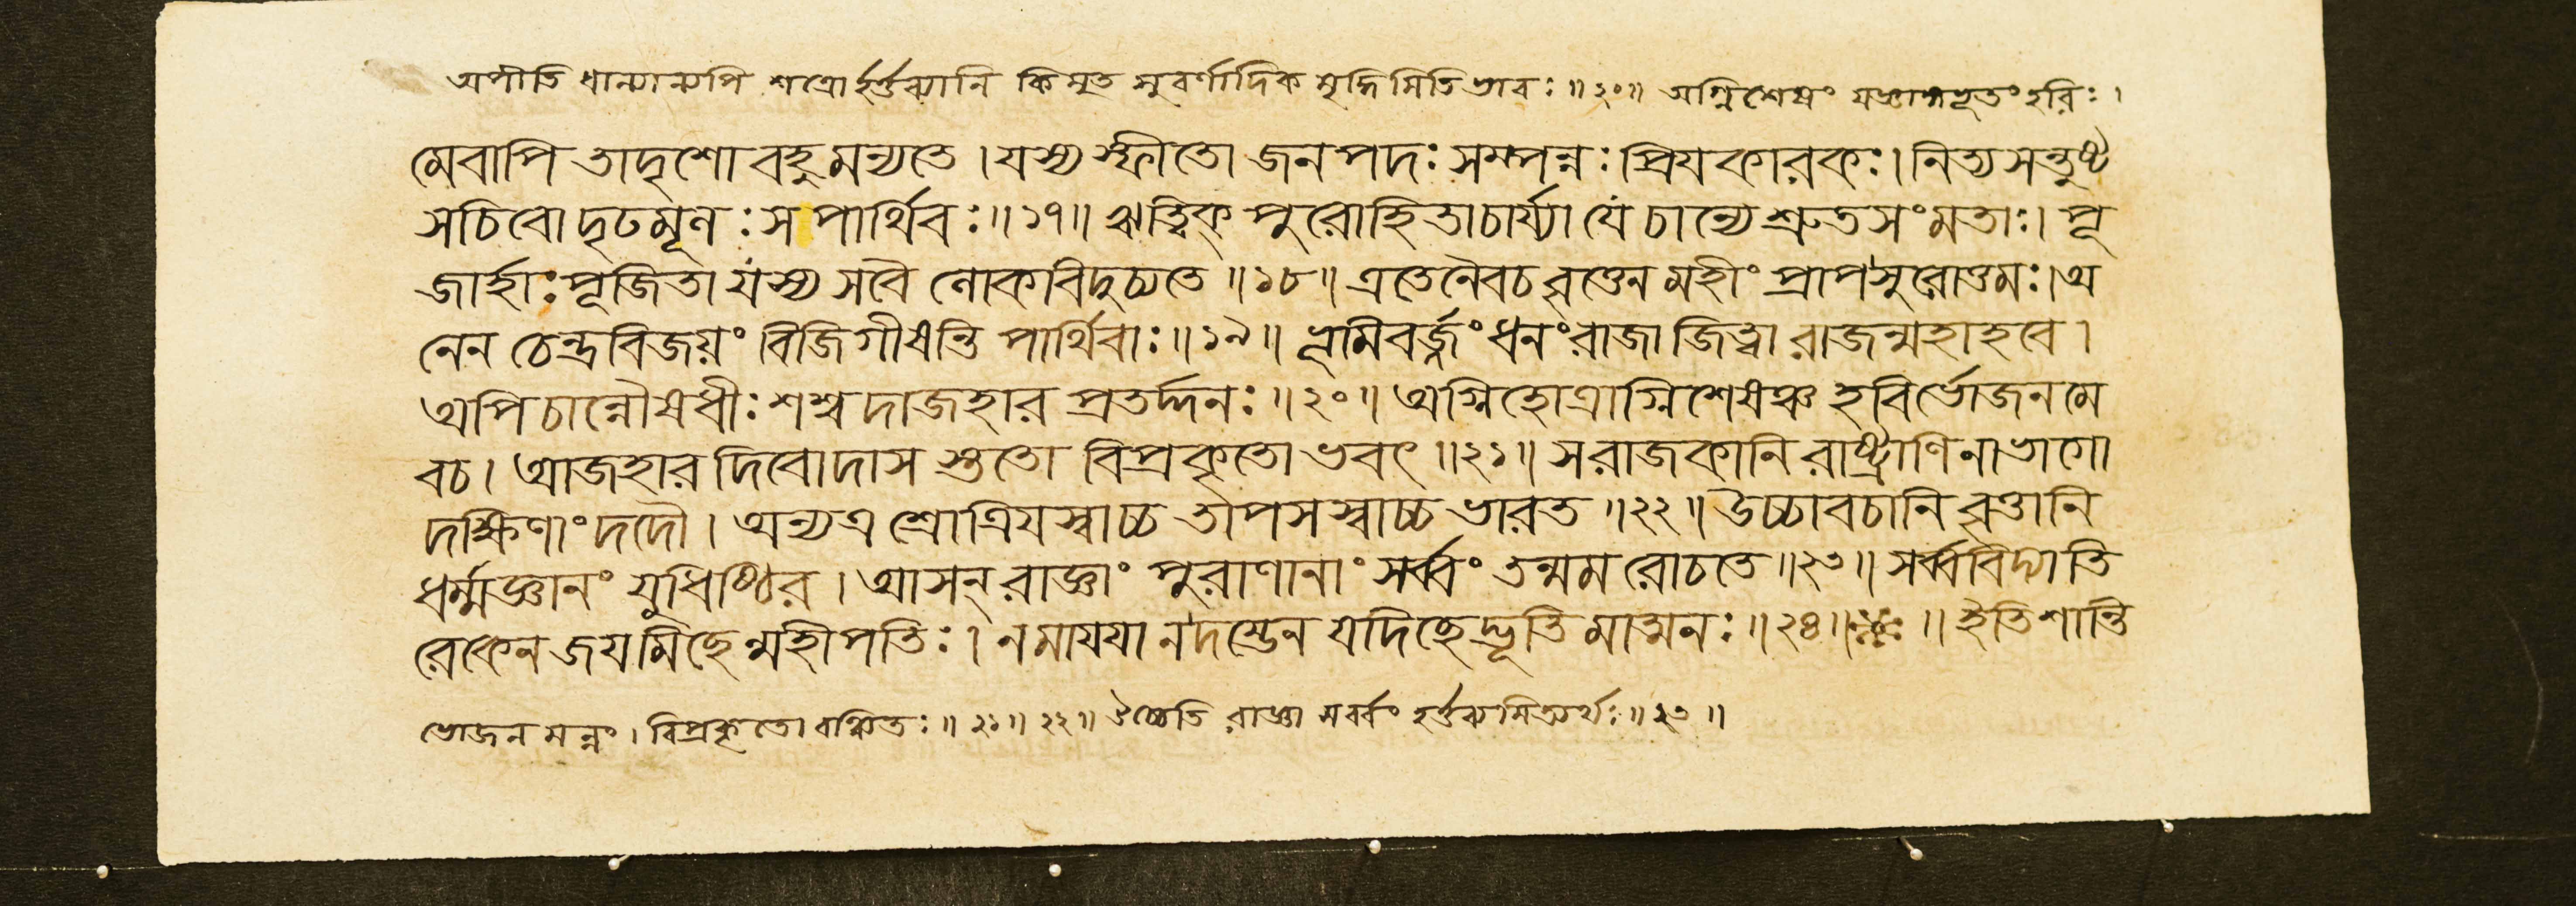 অপীতি ধান্যান্যপি শত্রোর্হর্ত্তব্যানি কিমুত সুবর্ণাদিক মৃদ্ধিমিতিভাবঃ ॥২০॥ অগ্নিশেষং যজ্ঞাঙ্গভূতং হরিঃ ।
মেবাপি তাদৃশো বহুমন্যতে । যস্য স্ফীতো জনপদঃ সম্পন্নঃ প্রিযকারকঃ । নিত্য সন্তুষ্ট
সচিবো দৃঢমূলঃ স পার্থিবঃ ॥১৭॥ ঋত্বিক্ পুরোহিতাচার্য্যা যে চান্যে শ্রুতসংমতাঃ । পূ
জার্হাঃ পূজিতা যস্য সবৈ লোকবিদুচ্যতে ॥১৮॥ এতেনৈবচ বৃত্তেন মহীং প্রাপ সুরোত্তমঃ । অ
নেন চেন্দ্রবিজয়ং বিজিগীষন্তি পার্থিবাঃ ॥১৯॥ ভূমিবর্জ্জং ধনং রাজা জিত্বা রাজন্মহাহবে ।
অপি চান্নৌষধীঃ শশ্বদাজহার প্রতর্দ্দনঃ ॥২০॥ অগ্নিহোত্রাগ্নিশেষঞ্চ হবির্ভোজনমে
বচ । আজহার দিবোদাস স্ততো বিপ্রকৃতো ভবৎ ॥২১॥ সরাজকানি রাষ্ট্রাণি নাভাগো
দক্ষিণাং দদৌ । অন্যত্র শ্রোত্রিযস্বাচ্চ তাপসস্বাচ্চ ভারত ॥২২॥ উচ্চাবচানি বৃত্তানি
ধর্ম্মজ্ঞানং যুধিষ্ঠির । আসন্ রাজ্ঞাং পুরাণানাং সর্ব্বং তন্মম রোচতে ॥২৩॥ সর্ব্ববিদ্যাতি
রেকেন জযমিচ্ছেন্মহীপতিঃ । নমাযযা নদম্ভেন যদিচ্ছেদ্ভূতিমাত্মনঃ ॥২৪॥ ॥ ইতি শান্তি
ভোজন মন্নং । বিপ্রকৃতো বঞ্চিতঃ ॥২১॥ ২২॥ উচ্চেতি রাজ্ঞা সর্ব্বং হর্ত্তব্যমিত্যর্থঃ ॥২৩॥